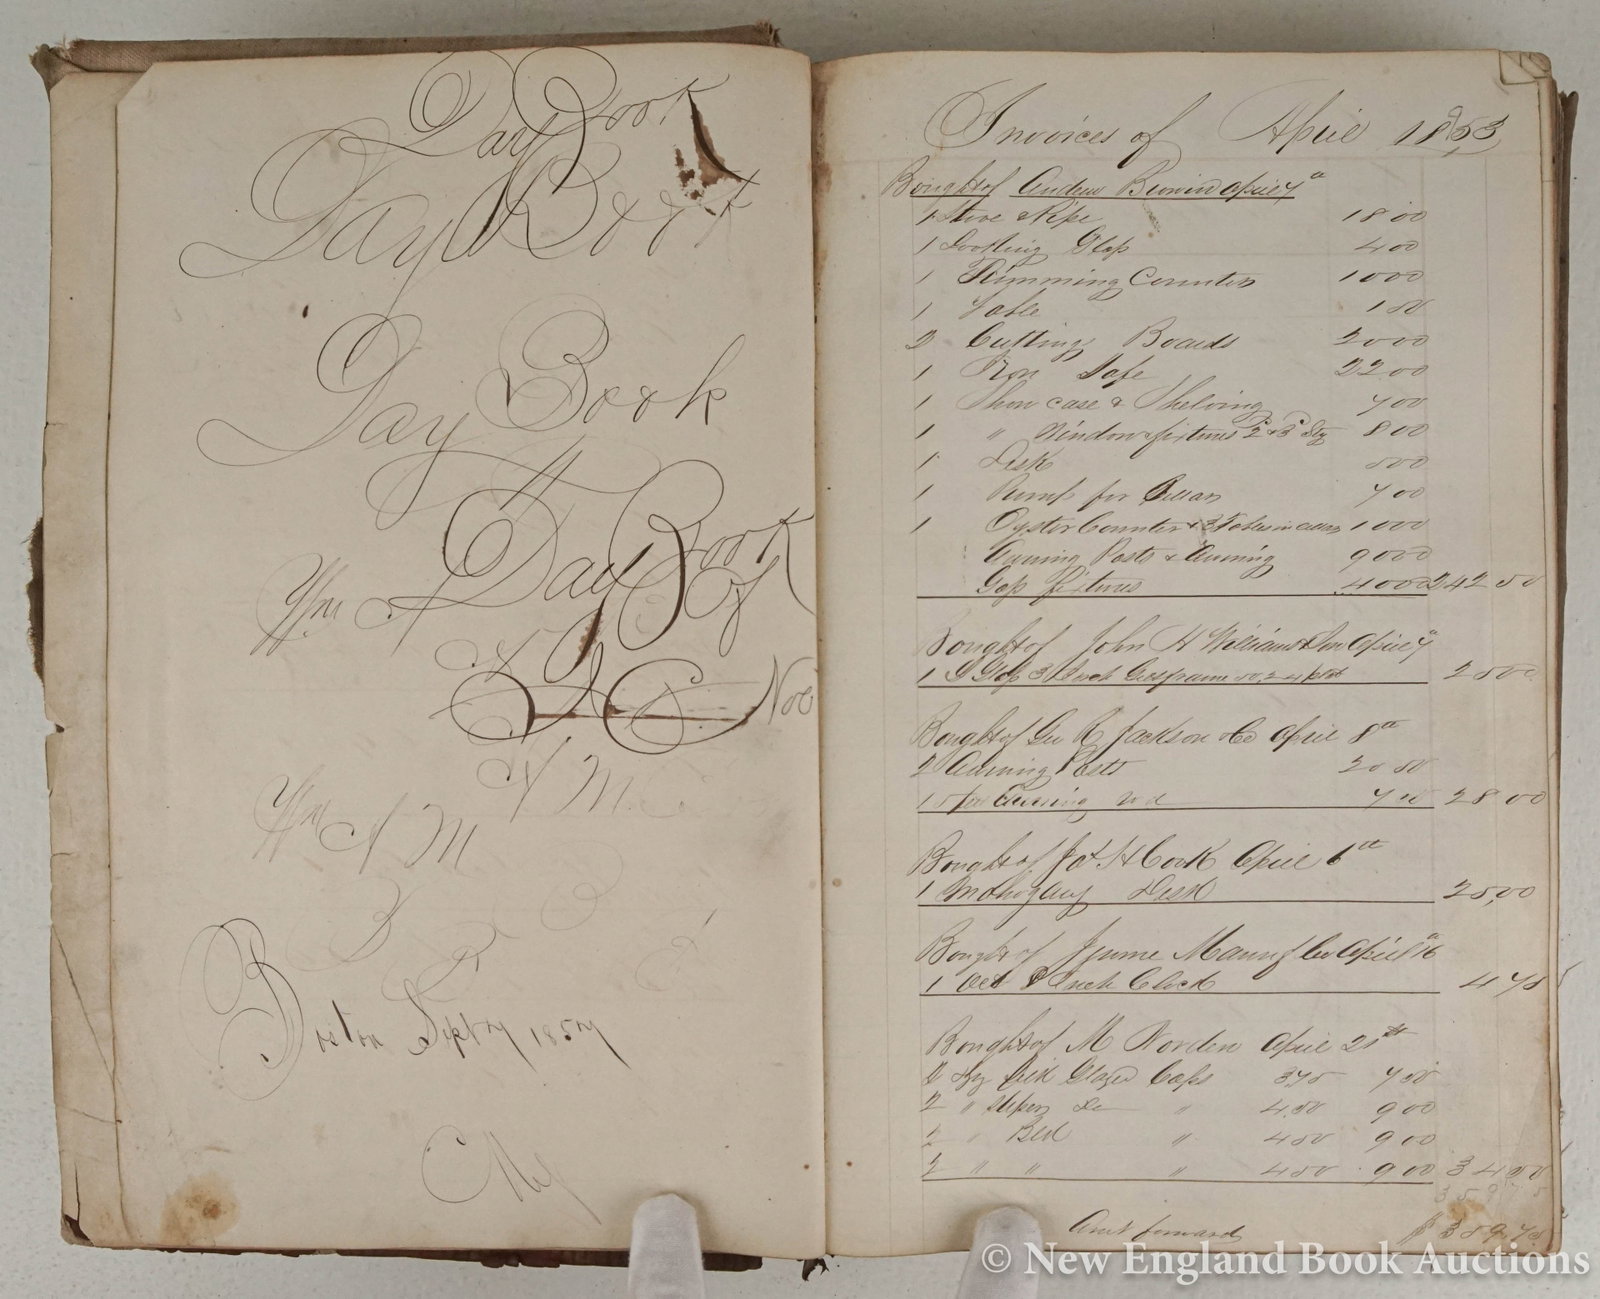 Day Book
Day Book
Day Book
Day Book
Wm A of
Nov
Wm A M
Boston 1857
My
Invoices of April 1853
Bought of Andrew April 7th
1 Stove & Pipe 18 00
1 Looking Glass 4 00
1 Trimming Counter 10 00
1 Table 1 50
2 Cutting Boards 20 00
1 Iron Safe 22 00
1 Show case & Shelving 7 00
1 " Window fixtures 2d & 3d Sty 8 00
1 Desk 5 00
1 Pump for Cellar 7 00
1 Oyster Counter & 3 Tables in cellar 10 00
Awning Posts & Awning 90 00
Gas fixtures 40 00 242 50
Bought of John H Williams & Son April 7th
1 Glass 3 Inch 25 00
Bought of Geo R Jackson & Co April 8th
2 Awning Posts 20 50
1 Awning rod 7 50 28 00
Bought of H Cook April 6th
1 Mahogany Desk 25,00
Bought of Jerome Manuf Co April 16th
1 Oct 8 Inch Clock 4 75
Bought of M Norden April 21st
2 Dz Glazed Caps 3.75 7 50
2 " Do " 4.50 9 00
2 " " 4 50 9 00
2 " " " 4 50 9 00 34 50
Amt forward $ 359 75
© New England Book Auctions